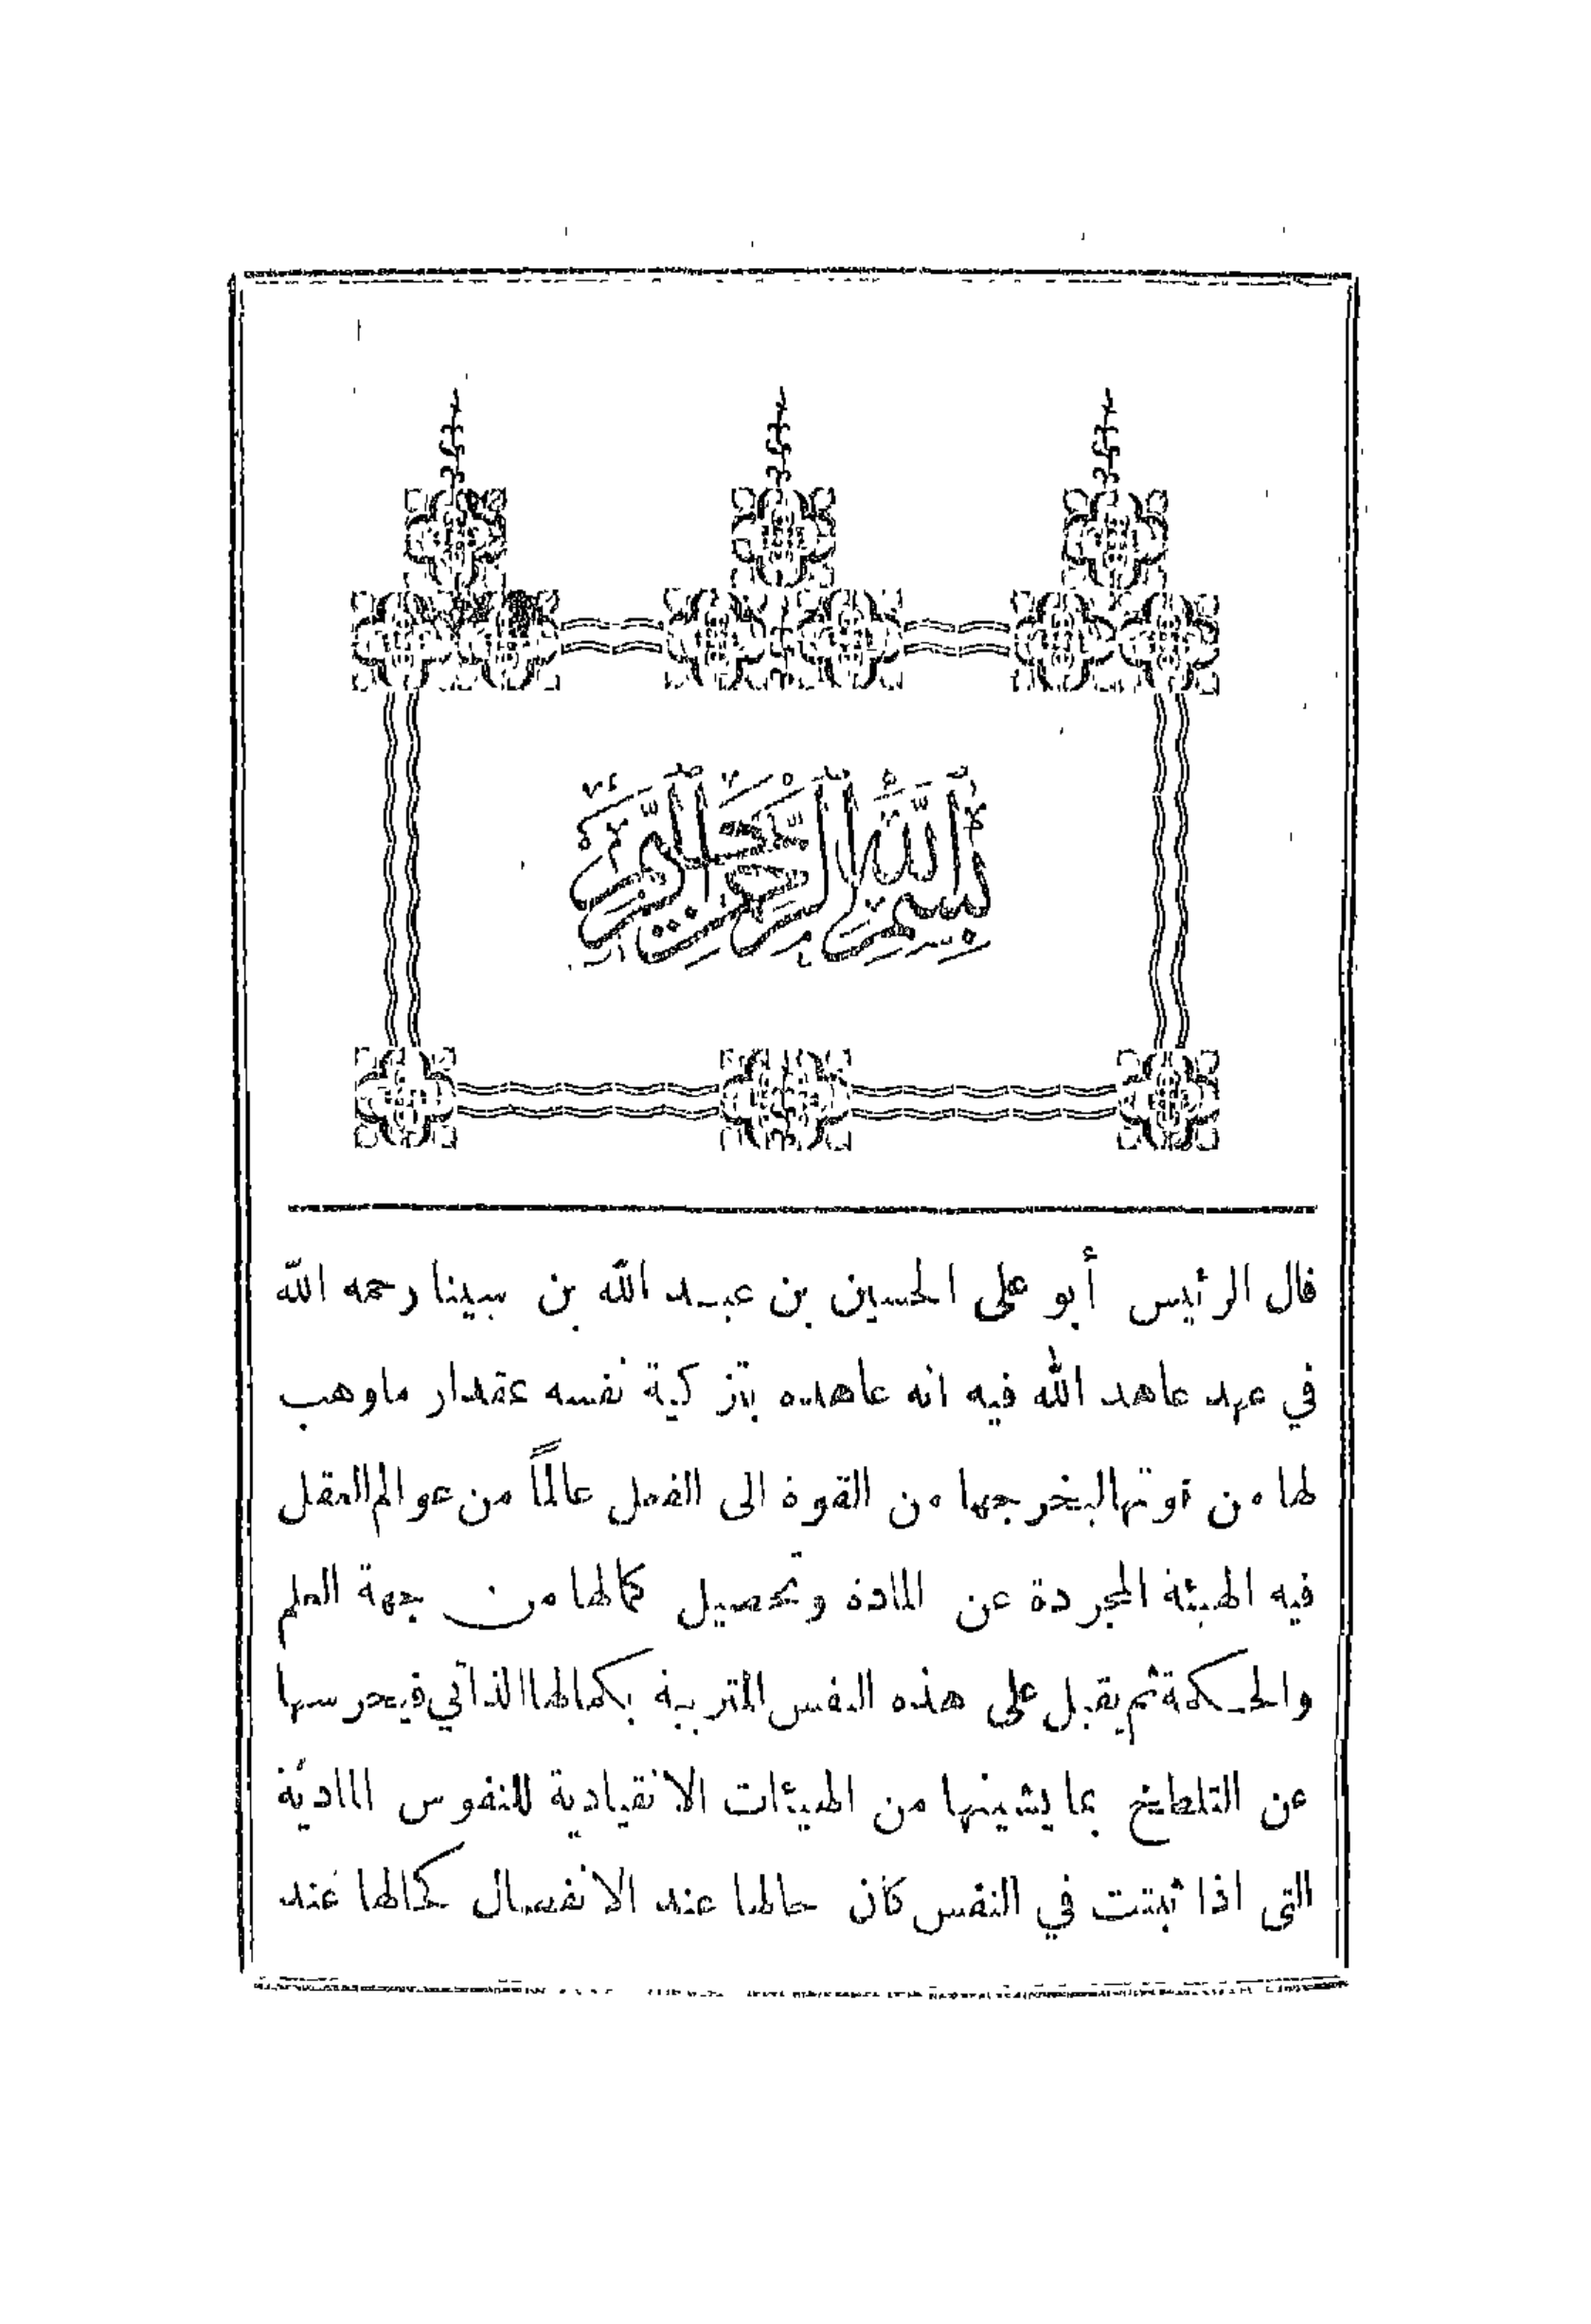 بسم الله الرحمن الرحيم
قال الرئيس أبو على الحسين بن عبد الله بن سينا رحمه الله
في عهد عاهد الله فيه انه عاهده بتزكية نفسه بمقدار ماوهب
لها من قوتها ليخرجها من القوة الى الفعل عالماً من عوالم العقل
فيه الهيئة المجردة عن المادة وتحصيل كمالها من جهة العلم
والحكمة ثم يقبل على هذه النفس المتربية بكمالها الذاتي فيحرسها
عن التلطخ بما يشينها من الهيئات الانقيادية للنفوس المادية
التى اذا ثبتت في النفس كان حالها عند الانفصال كحالها عند